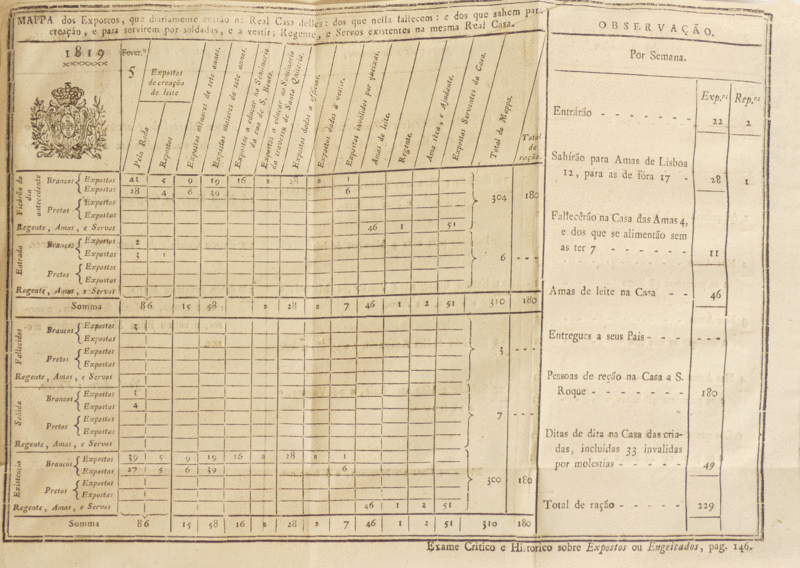 MAPPA dos Expostos, que diariamente entrão na Real Casa delles: dos que nella fallecem: e dos que sahem para
creação, e para servirem por soldadas, e a vestir; Regente, e Servos existentes na mesma Real Casa.
1819
Fever.º
5
Expostos
de creação
de leite
Pela Roda
Repostos
Expostos menores de sete annos.
Expostos maiores de sete annos.
Expostos a educar no Seminario
da rua de S. Bento.
Expostos a educar no Seminario
da travessa de Santa Quiteria.
Expostos dados a officio.
Expostos dados a vestir.
Expostos invalidos por queixas.
Amas de leite.
Regente.
Ama seca, e Ajudante.
Expostos Serventes da Casa.
Total do Mappa.
Total
de
ração.
Ficárão do
dia
antecedente
Brancos Expostos 41 5 9 19 16 2 28 2 1
Expostas 28 4 6 39 6
Pretos Expostos
Expostas
304 180
Regente, Amas, e Servos 46 1 51
Entrada
Brancos Expostos 2
Expostas 3 1
Pretos Expostos
Expostas
6 - - -
Regente, Amas, e Servos
Somma 86 15 58 2 28 2 7 46 1 2 51 310 180
Fallecidos
Brancos Expostos 3
Expostas
Pretos Expostos
Expostas
3 - - -
Regente, Amas, e Servos
Sahida
Brancos Expostos 1
Expostas 4
Pretos Expostos
Expostas
7 - - -
Regente, Amas, e Servos
Existencia
Brancos Expostos 39 5 9 19 16 2 28 2 1
Expostas 27 5 6 39 6
Pretos Expostos
Expostas
300 180
Regente, Amas, e Servos 46 1 2 51
Somma 86 15 58 16 2 28 2 7 46 1 2 51 310 180
OBSERVAÇÃO.
Por Semana.
Exp.os Rep.os
Entrárão - - - - - - - 22 2
Sahírão para Amas de Lisboa
12, para as de fóra 17 - 28 1
Fallecêrão na Casa das Amas 4,
e dos que se alimentão sem
as ter 7 - - - - - - 11
Amas de leite na Casa - - 46
Entregues a seus Pais - - - - - -
Pessoas de reção na Casa a S.
Roque - - - - - - - 180
Ditas de dita na Casa das cria-
das, incluidas 33 invalidas
por molestias - - - - - 49
Total de ração - - - - - 229
Exame Critico e Historico sobre Expostos ou Engeitados, pag. 146.